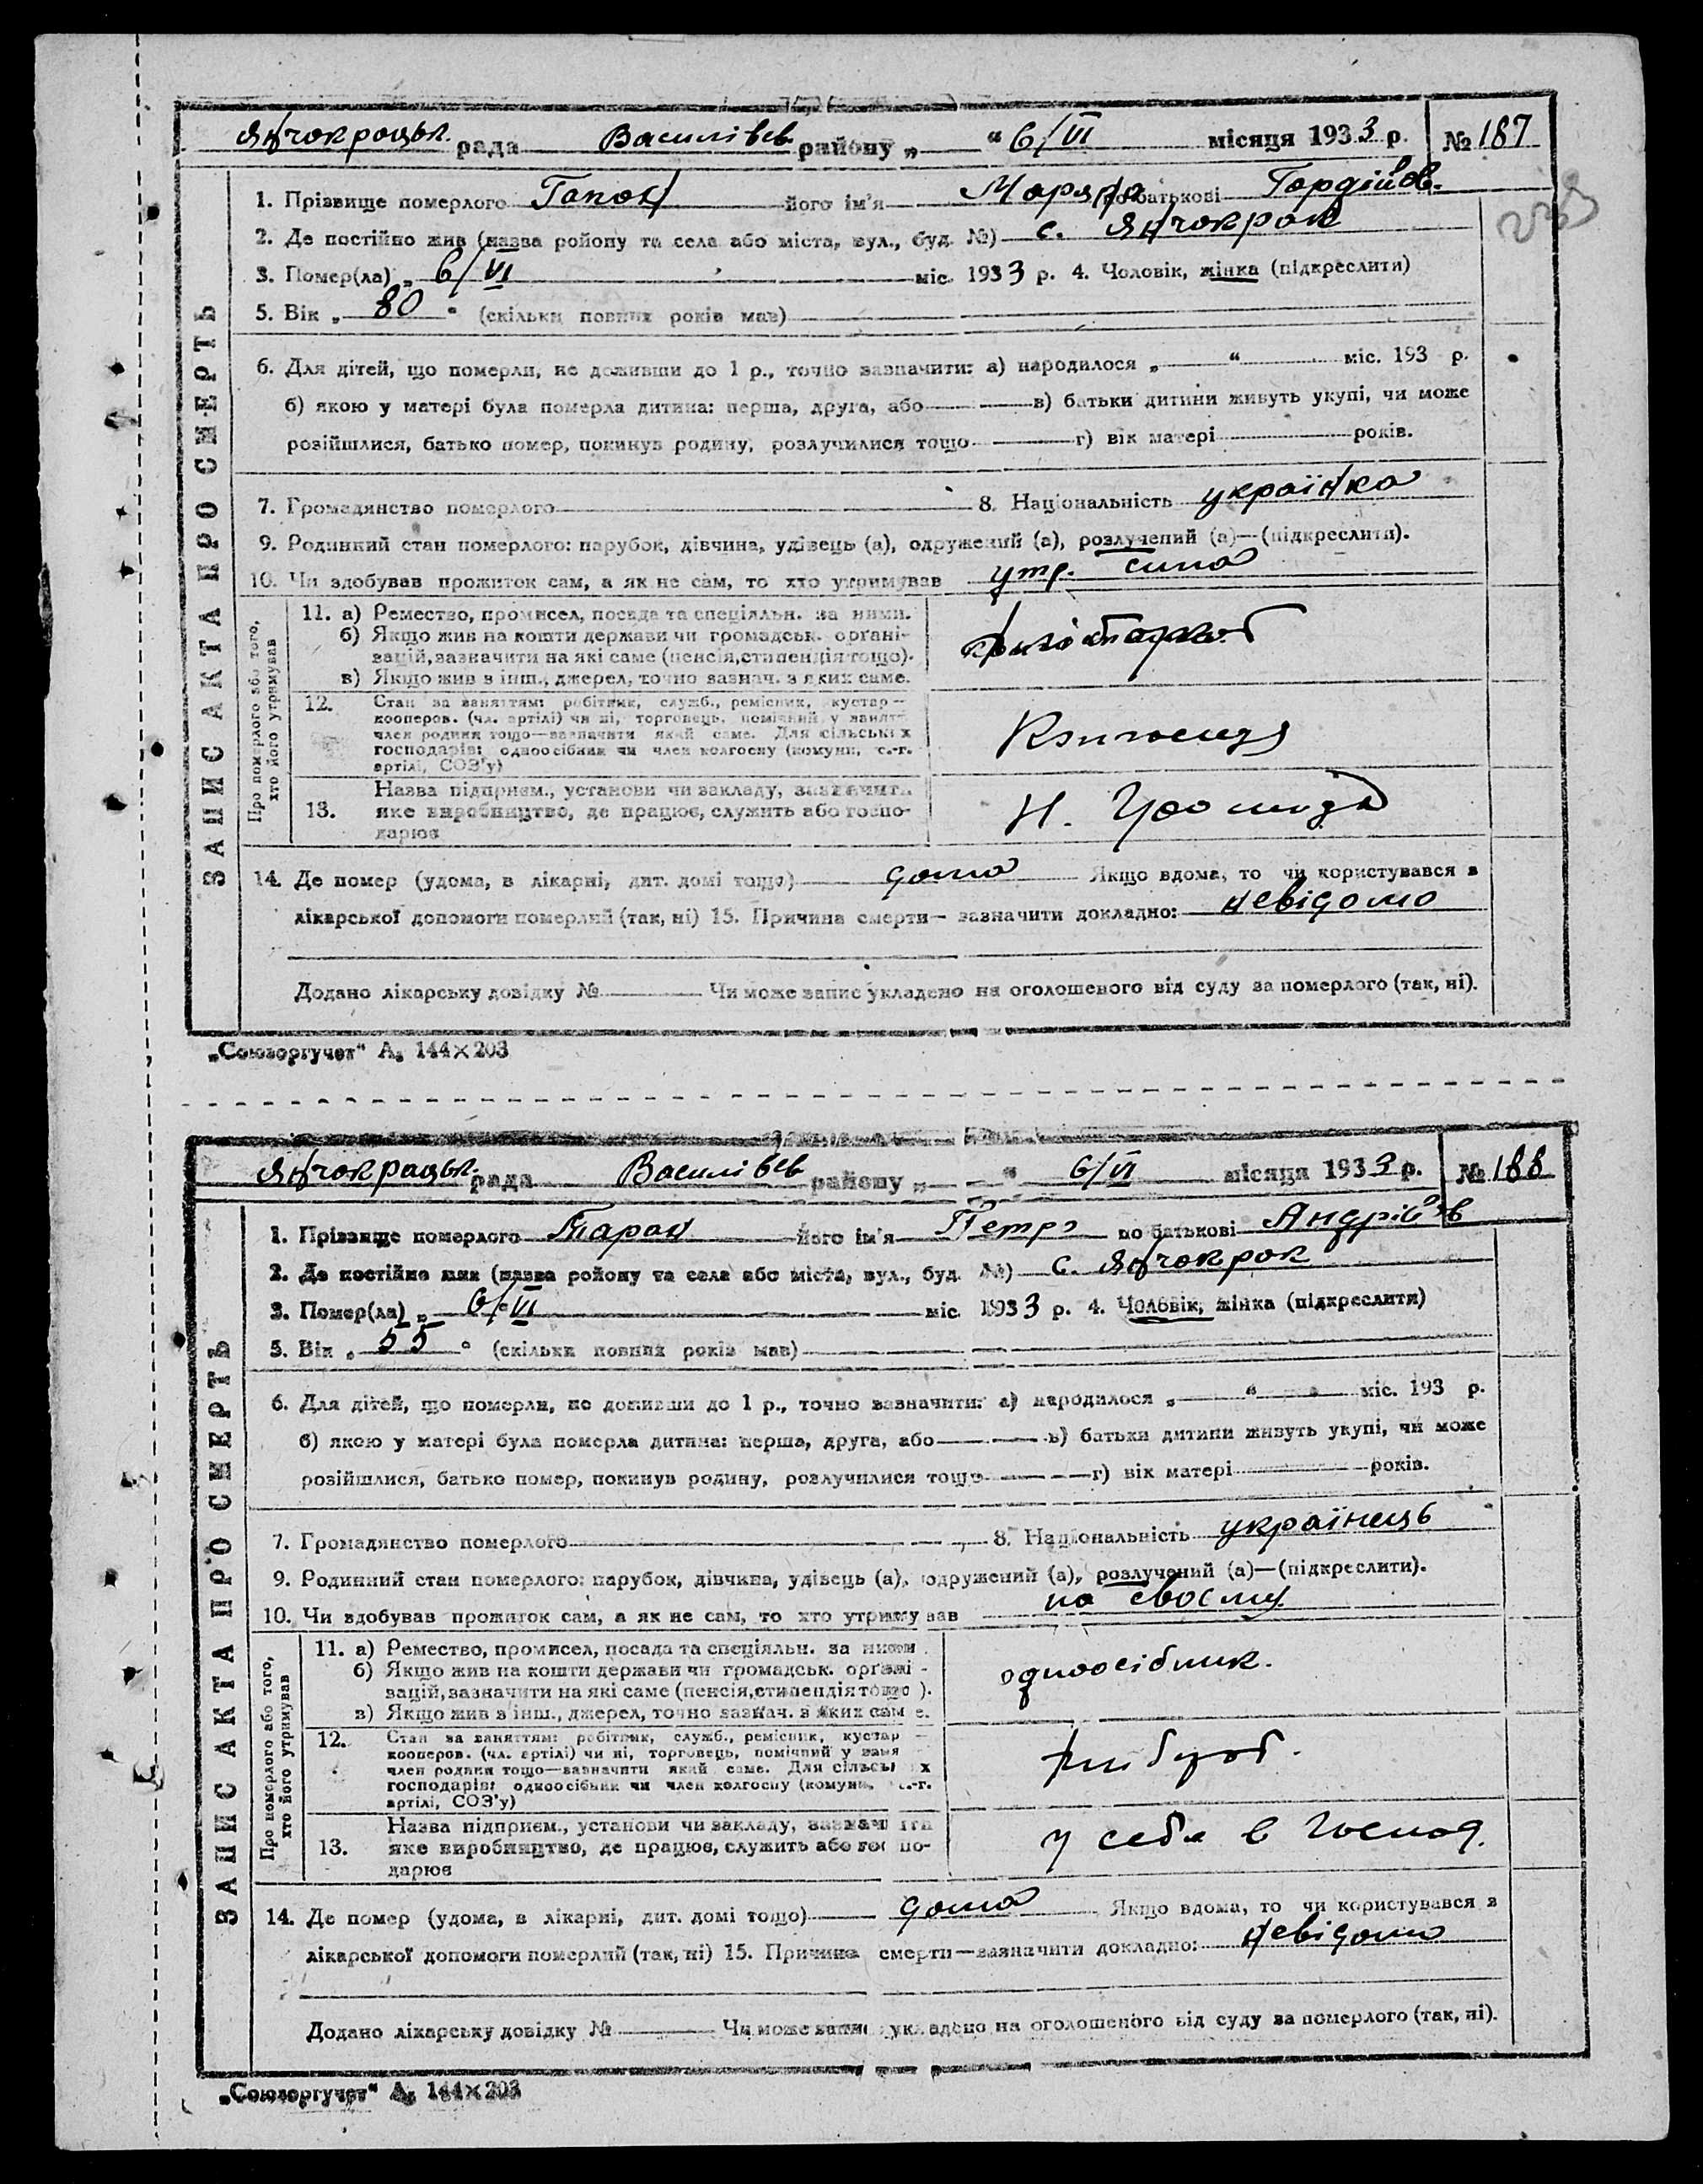 Янчокрацьк. рада Василівсв. району „ “ 6/VI місяця 1933 р. № 187
1. Прізвище померлого Гапон його ім'я Мария по батькові Гордійов.
2. Де постійно жив (назваройону та села або міста, вул., буд. №) с. Янчокрак
3. Помер(ла) „ 6/VI міс. 1933 р. 4. Чоловік, жінка (підкреслити)
5. Вік „ 80 “ (скільки повних років мав)
6. Для дітей, що померли, не доживши до 1 р., точно зазначити: а) народилося „ “ міс. 193 р.
б) якою у матері була померла дитина: перша, друга, або в) батьки дитини живуть укупі, чи може
розійшлися, батько помер, покинув родину, розлучилися тощо г) вік матері років.
7. Громадянство померлого 8. Національність українка
9. Родинний стан померлого: парубок, дівчина, удівець (а), одружений (а), розлучений (а)—(підкреслити).
10. Чи здобував прожиток сам, а як не сам, то хто утримував утр. сина
ЗАПИС АКТА ПРО СМЕРТЬ
Про померлого або того, хто його утримував
11. а) Ремество, промисел, посада та спеціяльн. за ними.
б) Якщо жив на кошти держави чи громадськ. органі-
зацій, зазначити на які саме (пенсія, стипендія тощо).
в) Якщо жив з інш., джерел, точно зазнач. з яких саме.
12. Стан за заняттям: робітник, служб., ремісник, кустар—
кооперов. (чл. артілі) чи ні, торговець, помічний у занятт.
член родини тощо—зазначити який саме. Для сільських
господарів: одноосібник чи член колгоспу (комуни, с.-г.
артілі, СОЗ'у)
13. Назва підприєм., установи чи закладу, зазначити
яке виробництво, де працює, служить або госпо-
дарює
14. Де помер (удома, в лікарні, дит. домі тощо) дома Якщо вдома, то чи користувався з
лікарської допомоги померлий (так, ні) 15. Причина смерти— зазначити докладно: невідомо
Додано лікарську довідку № Чи може запис укладено на оголошеного від суду за померлого (так, ні).
„Союзоргучет“ А₅ 144×203
Янчокрацьк. рада Василівсв району „ “ 6/VI місяця 1933 р. № 188
1. Прізвище померлого Таран його ім'я Петро по батькові Андрійов
2. Де постійно жив (назва ройону та села або міста, вул., буд. №) с. Янчокрак
3. Помер(ла) „ 6/VI міс. 1933 р. 4. Чоловік, жінка (підкреслити)
5. Вік „ 55 “ (скільки повних років мав)
6. Для дітей, що померли, не доживши до 1 р., точно зазначити: а) народилося „ “ міс. 193 р.
б) якою у матері була померла дитина: перша, друга, або в) батьки дитини живуть укупі, чи може
розійшлися, батько помер, покинув родину, розлучилися тощо г) вік матері років.
7. Громадянство померлого 8. Національність українець
9. Родинний стан померлого: парубок, дівчина, удівець (а), одружений (а), розлучений (а)—(підкреслити).
10. Чи здобував прожиток сам, а як не сам, то хто утримував на своєму
ЗАПИС АКТА ПРО СМЕРТЬ
Про померлого або того, хто його утримував
11. а) Ремество, промисел, посада та спеціяльн. за ними.
б) Якщо жив на кошти держави чи громадськ. органі-
зацій, зазначити на які саме (пенсія, стипендія тощо).
в) Якщо жив з інш., джерел, точно зазнач. з яких саме.
одноосібник.
12. Стан за заняттям: робітник, служб., ремісник, кустар—
кооперов. (чл. артілі) чи ні, торговець, помічний у заня
член родини тощо—зазначити який саме. Для сільських
господарів: одноосібник чи член колгоспу (комуни, с.-г.
артілі, СОЗ'у)
13. Назва підприєм., установи чи закладу, зазначити
яке виробництво, де працює, служить або госпо-
дарює
у себя в господ.
14. Де помер (удома, в лікарні, дит. домі тощо) дома Якщо вдома, то чи користувався з
лікарської допомоги померлий (так, ні) 15. Причина смерти—зазначити докладно: невідомо
Додано лікарську довідку № Чи може запис укладено на оголошеного від суду за померлого (так, ні).
„Союзоргучет“ А₅ 144×203